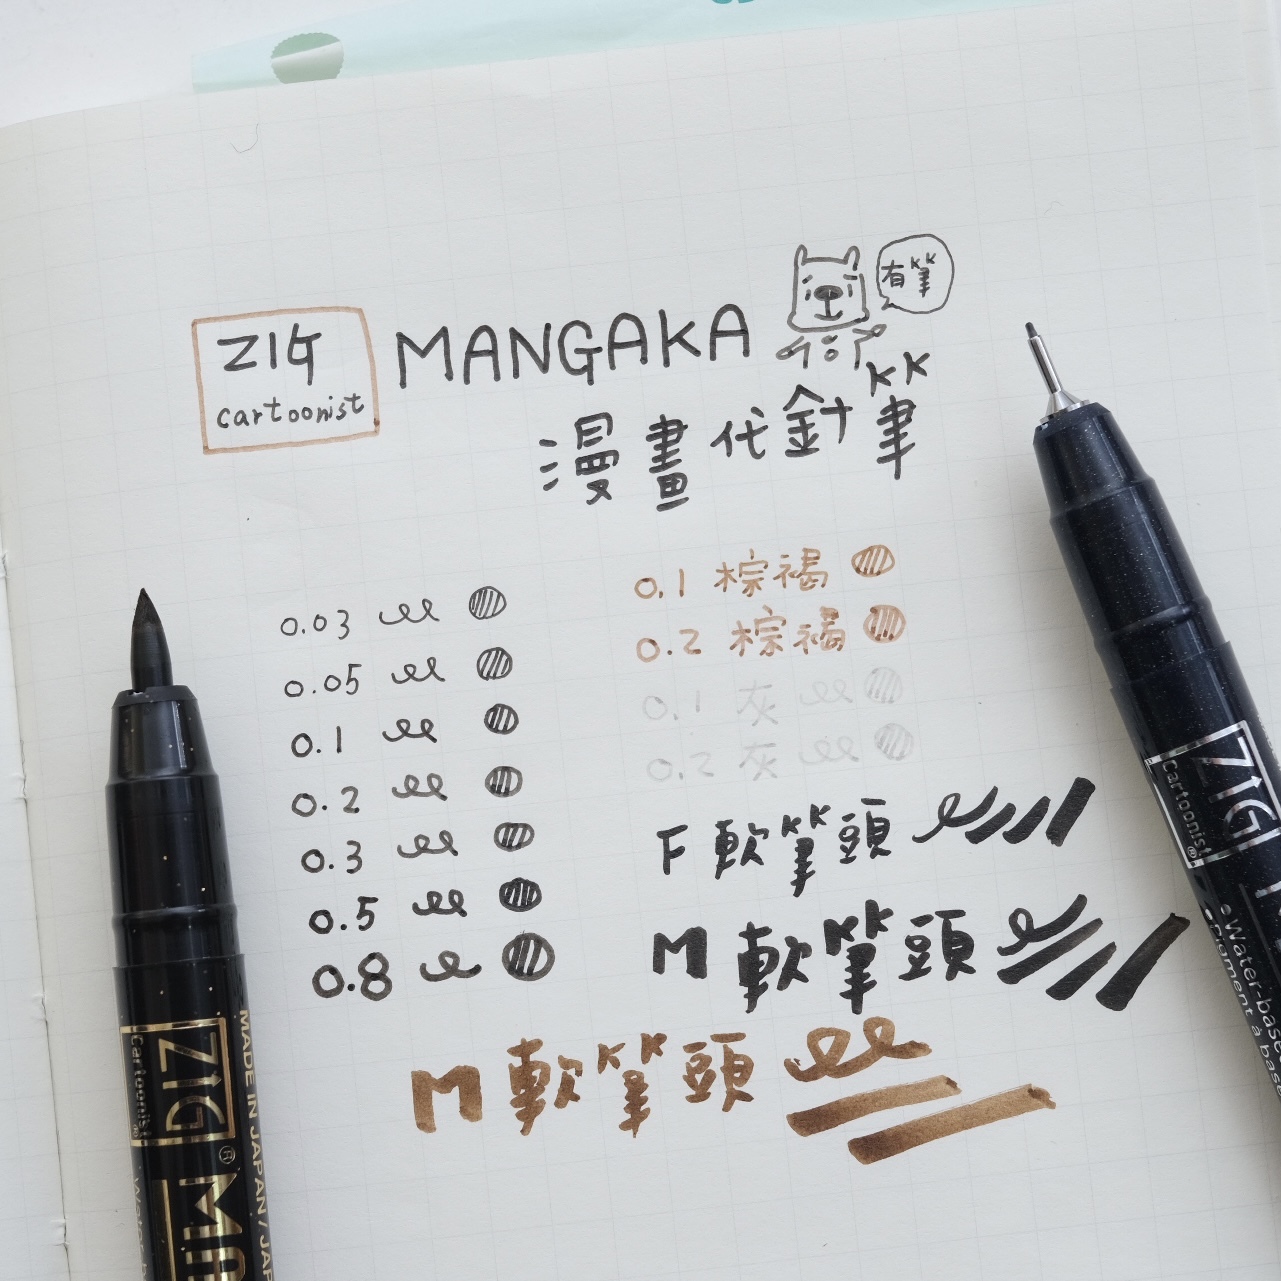 有筆
ZIG
cartoonist
MANGAKA
漫畫代針筆
0.03
0.05
0.1
0.2
0.3
0.5
0.8
0.1 棕褐
0.2 棕褐
0.1 灰
0.2 灰
F 軟筆頭
M 軟筆頭
M 軟筆頭
ZIG
Cartoonist®
MADE IN JAPAN /
ZIG
Cartoonist®
Water-base